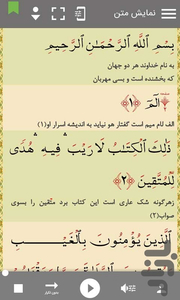 نمایش متن
بِسْمِ اللَّهِ الرَّحْمَٰنِ الرَّحِيمِ
به نام خداوند هر دو جهان
که بخشنده است و بسی مهربان
الٓمٓ ﴿١﴾
الف لام میم است گفتار هو نیابد به اندیشه اسرار او(۱)
ذَٰلِكَ الْكِتَابُ لَا رَيْبَ ۛ فِيهِ ۛ هُدًى
لِّلْمُتَّقِينَ ﴿٢﴾
زهرگونه شک عاری است این کتاب برد متقین را بسوی
صواب(۲)
الَّذِينَ يُؤْمِنُونَ بِالْغَيْبِ